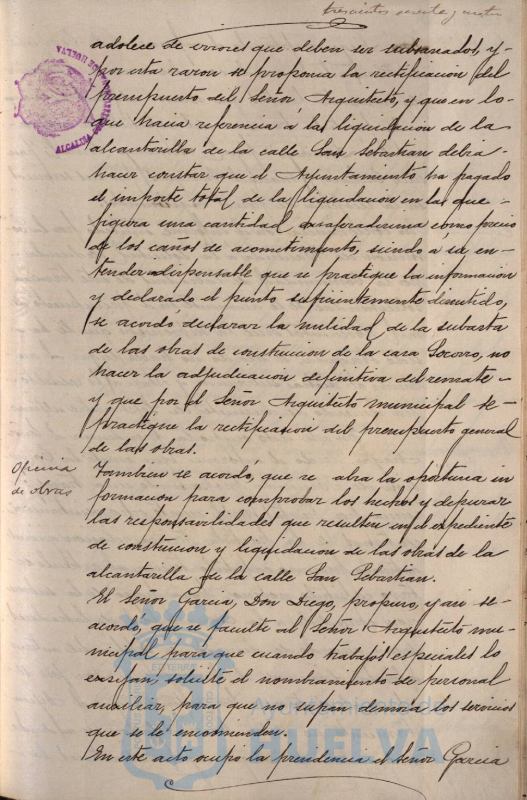 trescientos sesenta y
adolece de errores que deben ser subsanados, y
por esta razon se proponia la rectificacion del
presupuesto del Señor Arquitecto, y que en lo
que hacia referencia á la liquidacion de la
alcantarilla de la calle San Sebastian debia
hacer constar que el Ayuntamiento ha pagado
el importe total de la liquidacion en la que
figura una cantidad como precio
de los caños de acometimiento, siendo a su en-
tender indispensable que se practique la informacion
y declarado el punto suficientemente discutido,
se acordó declarar la nulidad de la subasta
de las obras de construccion de la casa Socorro, no
hacer la adjudicacion definitiva del remate
y que por el Señor Arquitecto municipal se
practique la rectificacion del presupuesto general
de las obras.
Oficina
de obras
Tambien se acordó, que se abra la oportuna in
formacion para comprobar los hechos y depurar
las responsavilidades que resulten en el expediente
de construcion y liquidacion de las obras de la
alcantarilla de la calle San Sebastian.
El Señor Garcia, Don Diego, propuso, y asi se
acordó, que se faculte al Señor Arquitecto mu-
nicipal para que cuando trabajos especiales lo
exijan, solicite el nombramiento de personal
auxiliar, para que no sufran demora los servicios
que se le encomienden.
En este acto ocupo la presidencia el Señor Garcia
ALCALDIA
DE HUELVA
Ayuntamiento de
HUELVA